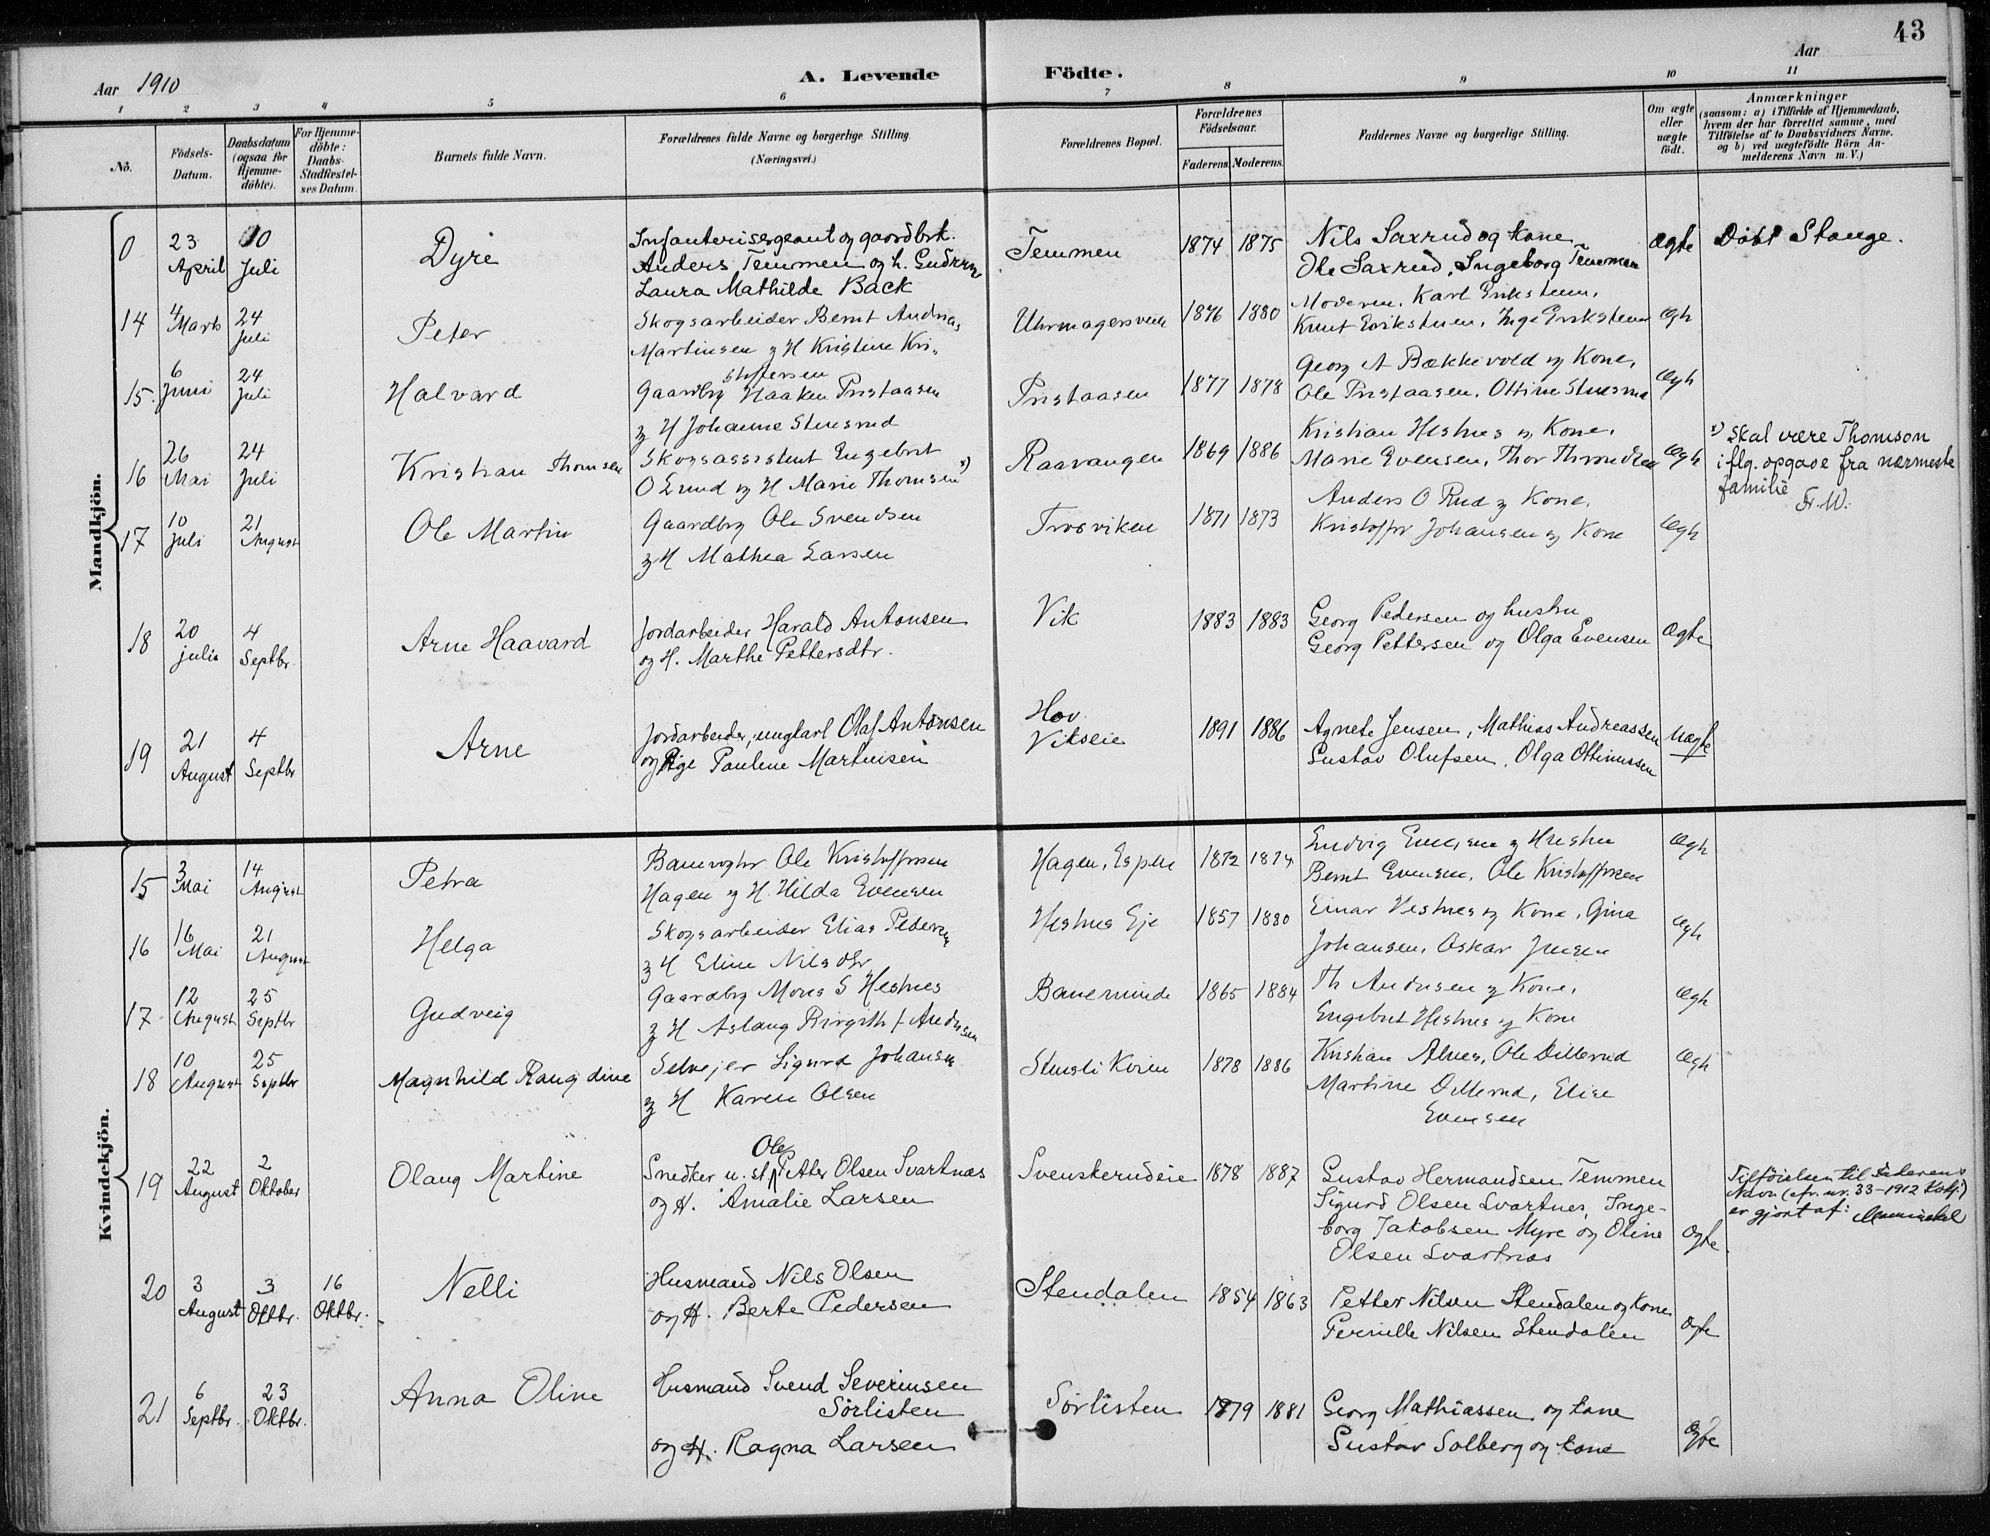 43
Aar 1910 A. Levende Födte. Aar
1 2 3 4 5 6 7 8 9 10 11
No.
Födsels-Datum.
Daabsdatum (ogsaa for Hjemme-döbte).
For Hjemme-döbte: Daabs-Stadfæstel-ses Datum.
Barnets fulde Navn.
Forældrenes fulde Navne og borgerlige Stilling.
(Næringsvei.)
Forældrenes Bopæl.
Forældrenes Födselsaar.
Faderens. Moderens.
Faddernes Navne og borgerlige Stilling.
Om ægte eller uægte födt.
Anmærkninger
(saasom: a) i Tilfælde af Hjemmedaab, hvem der har forrettet samme, med Tilföielse af to Daabsvidners Navne. og b) ved uægtefödte Börn An-melderens Navn m. V.)
Mandkjön.
0 23 April 10 Juli Dyre Infanterisergeant og gaardbrk. Anders Temmen og h. Gudrun Laura Mathilde Back Temmen 1874 1875 Nils Saxrud og kone Ole Saxrud, Ingeborg Temmen ægte Döbt Stange.
14 4 Marts 24 Juli Peter Skogsarbeider Bernt Andreas Martinsen og H Kristine Kristoffersen 1876 1880 Moderen, Karl Eriksteen, Knut Eriksteen, Inga Eriksteen Ægte
15. 6 Juni 24 Juli Halvard Gaardbrg Haaken Pristaasen og H Johanne Stensrud Pristaasen 1877 1878 Georg A Bækkevold og Kone, Ole Pristaasen, Ottine Stensrud Ægte
16 26 Mai 24 Juli Kristian Thomsen Skogsassistent Engebret O Lund og H Marie Thomsen x) Raavangen 1869 1886 Kristian Hesnes og Kone, Marie Evensen, Thor Throndsen Ægte x) Skal være Thomson iflg. opgave fra nærmeste familie Fr. W.
17 10 Juli 21 August Ole Martin Gaardbrg Ole Svendsen og H Mathea Larsen Trosviken 1871 1873 Anders O Rud og Kone, Kristoffer Johansen og Kone Ægte
18 20 juli 4 Septbr. Arne Haavard Jordarbeider Harald Antonsen og H. Marthe Pettersdtr. Vik 1883 1883 Georg Pedersen og hustru Georg Pettersen og Olga Evensen Ægte
19 21 August 4 Septbr Arne Jordarbeider, ungkarl Olaf Antonsen og Pige Pauline Martinsen Hov Vikseie 1891 1886 Agnete Jensen, Mathias Andreassen Gustav Olufsen, Olga Ottinussen Uægte
Kvindekjön.
15 3 Mai 14 August Petra Banevogter Ole Kristoffersen Hagen og H. Hilda Evensen Hagen, Espen 1872 1874 Ludvig Evensen og Hustru Bernt Evensen, Ole Kristoffersen Ægte
16 16 Mai 21 August Helga Skogsarbeider Elias Pedersen og H Eline Nilsdtr Hesnes Eje 1857 1880 Einar Hesnes og Kone, Gina Johansen, Oskar Jensen Ægte
17 12 August 25 Septbr Gudveig Gaardbrg Mons S Hesnes og H Aslaug Birgith f. Andersen 1865 1884 Th Andersen og Kone, Engebret Hesnes og Kone Ægte
18 10 August 25 Septbr Magnhild Raugdine Selvejer Sigurd Johansen og H Karen Olsen 1878 1886 Kristian Alnes, Ole Dillerud Martine Dillerud, Elise Evensen Ægte
19 22 August 2 Oktober Olaug Martine Snedker u. st. Ole Petter Olsen Svartnæs og H. Amalie Larsen Svenskerudeie 1878 1887 Gustav Hermandsen Temmen Sigurd Olsen Svartnes, Inge-borg Jakobsen Myre og Oline Olsen Svartnæs Ægte. Tilføielsen til faderens Navn (cfr. nr. 33-1912 Kvkj.) er gjort af:
20 3 August 3 Oktbr. 16 Oktbr. Nelli Husmand Nils Olsen og H. Berte Pedersen Stendalen 1854 1863 Petter Nilsen Stendalen og Kone Pernille Nilsen Stendalen Ægte
21 6 Septbr. 23 Oktbr. Anna Oline Husmand Svend Severinsen Sörlisten og H. Ragna Larsen Sörlisten 1879 1881 Georg Mathiassen og kone Gustav Solberg og kone Ægte